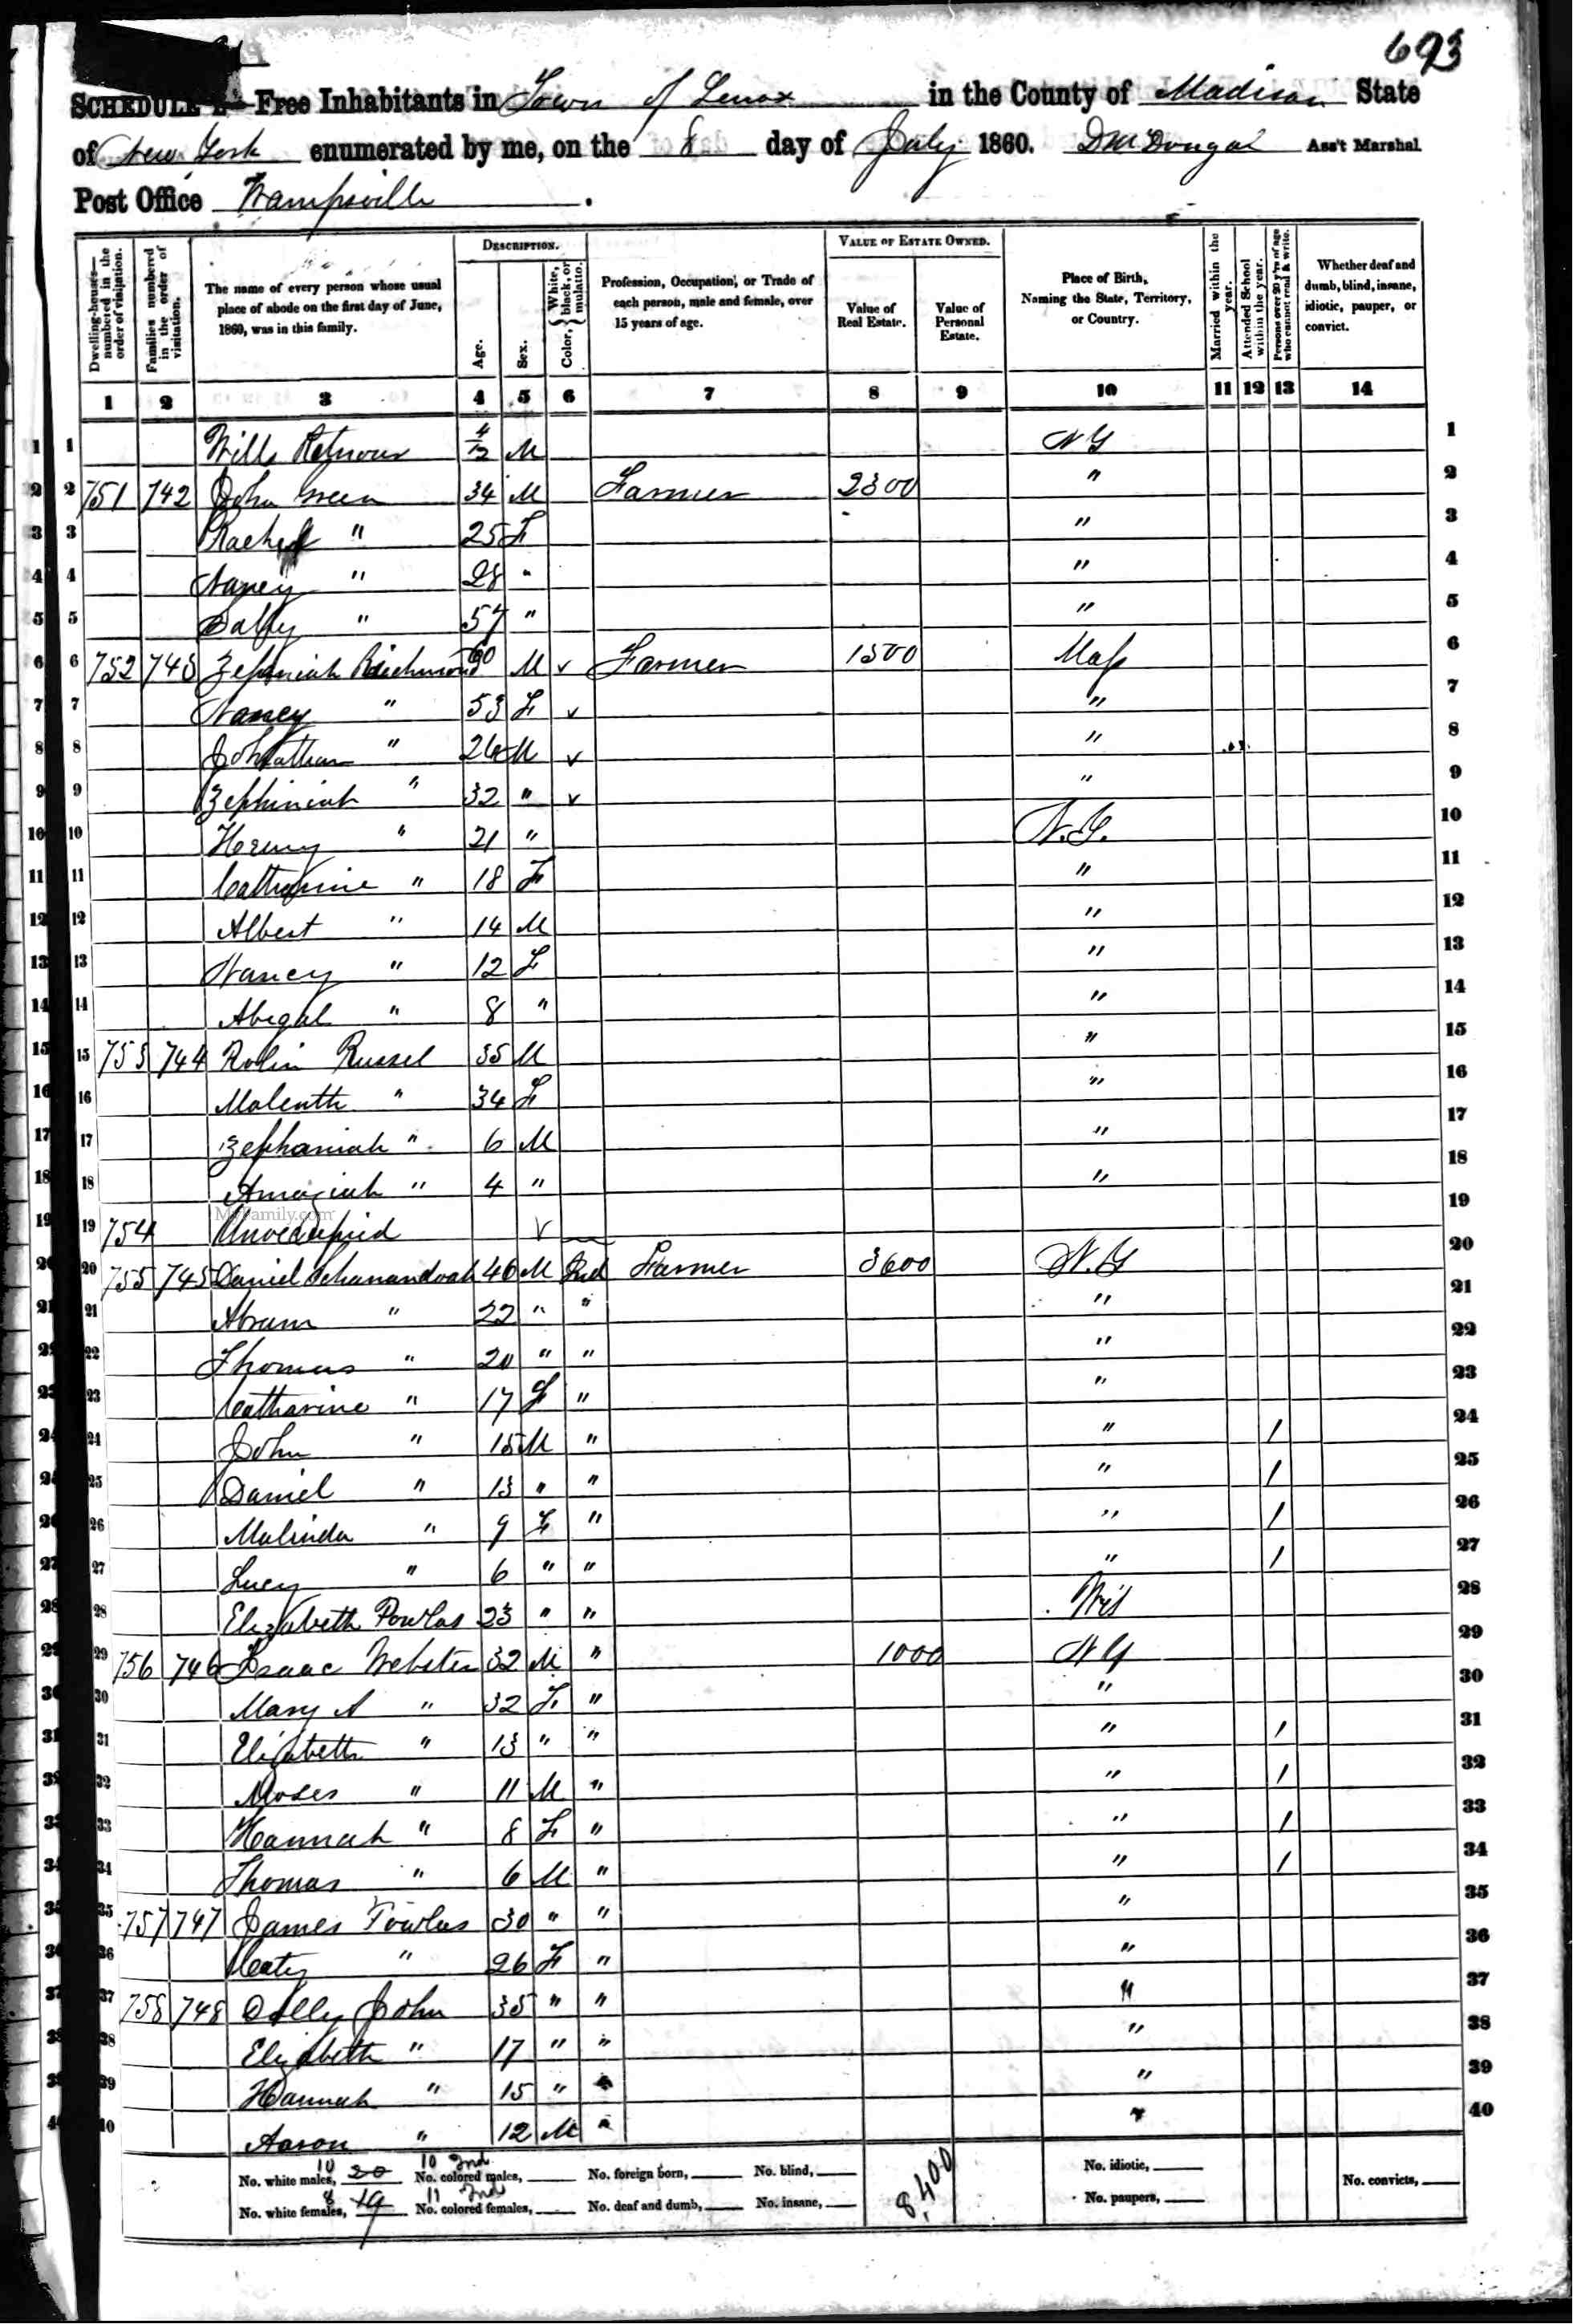 693
SCHEDULE 1 Free Inhabitants in Town of Lenox in the County of Madison State
of New York enumerated by me, on the 8 day of July 1860. Ass't Marshal
Post Office Wampsville .
Dwelling-houses— numbered in the order of visitation.
Families numbered in the order of visitation.
The name of every person whose usual place of abode on the first day of June, 1860, was in this family.
DESCRIPTION.
Age.
Sex.
Color, { White, black, or mulatto.
Profession, Occupation, or Trade of each person, male and female, over 15 years of age.
VALUE OF ESTATE OWNED.
Value of Real Estate.
Value of Personal Estate.
Place of Birth, Naming the State, Territory, or Country.
Married within the year.
Attended School within the year.
Persons over 20 y'rs of age who cannot read & write.
Whether deaf and dumb, blind, insane, idiotic, pauper, or convict.
1 2 3 4 5 6 7 8 9 10 11 12 13 14
1 1 4/12 M N Y 1
2 2 751 742 John Green 34 M Farmer 2300 " 2
3 3 Rachel " 25 F " 3
4 4 Nancy " 28 " " 4
5 5 Sally " 57 " " 5
6 6 752 743 Zephniah Richmond 60 M v Farmer 1500 Mass 6
7 7 Nancy " 53 F v " 7
8 8 Johnathan " 26 M v " 8
9 9 Zephiniah " 32 " v " 9
10 10 Henry " 21 " N.Y. 10
11 11 Catharine " 18 F " 11
12 12 Albert " 14 M " 12
13 13 Nancy " 12 F " 13
14 14 Abigal " 8 " " 14
15 15 753 744 Rolin Russel 35 M " 15
16 16 Malenth " 34 F " 16
17 17 Zephaniah " 6 M " 17
18 18 Amaziah " 4 " " 18
MyFamily.com
19 19 754 Unoccupied v 19
20 20 755 745 Daniel Schanandoah 46 M Ind Farmer 3600 N.Y 20
21 21 Abram " 22 " " " 21
22 22 Thomas " 20 " " " 22
23 23 Catharine " 17 F " " 23
24 24 John " 15 M " " / 24
25 25 Daniel " 13 " " " / 25
26 26 Malinda " 9 F " " / 26
27 27 Lucy " 6 " " " / 27
28 28 Elizabeth Powlas 23 " " Wis 28
29 29 756 746 Isaac Webster 32 M " 1000 N Y 29
30 30 Mary A " 32 F " " 30
31 31 Elizabeth " 13 " " " / 31
32 32 Moses " 11 M " " / 32
33 33 Hannah " 8 F " " / 33
34 34 Thomas " 6 M " " / 34
35 35 757 747 James Powlus 30 " " " 35
36 36 Caty " 26 F " " 36
37 37 758 748 John 35 " " " 37
38 38 Elizabeth " 17 " " " 38
39 39 Hannah " 15 " " " 39
40 40 Aaron " 12 M " " 40
No. white males, 10 20 No. colored males, 10 Ind No. foreign born, No. blind, 8,400 No. idiotic, No. convicts,
No. white females, 8 19 No. colored females, 11 Ind No. deaf and dumb, No. insane, No. paupers,